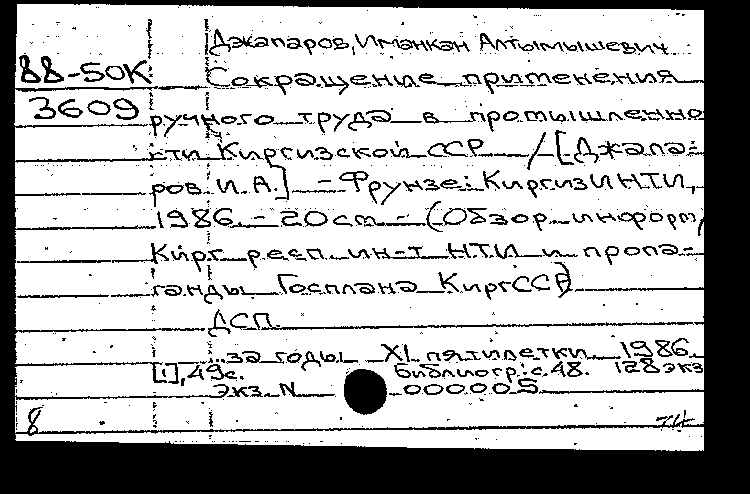 Джапаров, Иманкан Алтымышевич.
88-50К Сокращение применения
3609 ручного труда в промышленно
сти Киргизской ССР /[Джапа=
ров И.А.] - Фрунзе: КиргизИНТИ,
1986. - 20 cm - (Обзор. информ,/
Кирг. респ. ин-т НТИ и пропа=
ганды Госплана КиргССР)
ДСП.
..за годы XI пятилетки 1986.
[1], 49с. Библиогр: с.48. 128 экз
Экз. N 000005
8 74